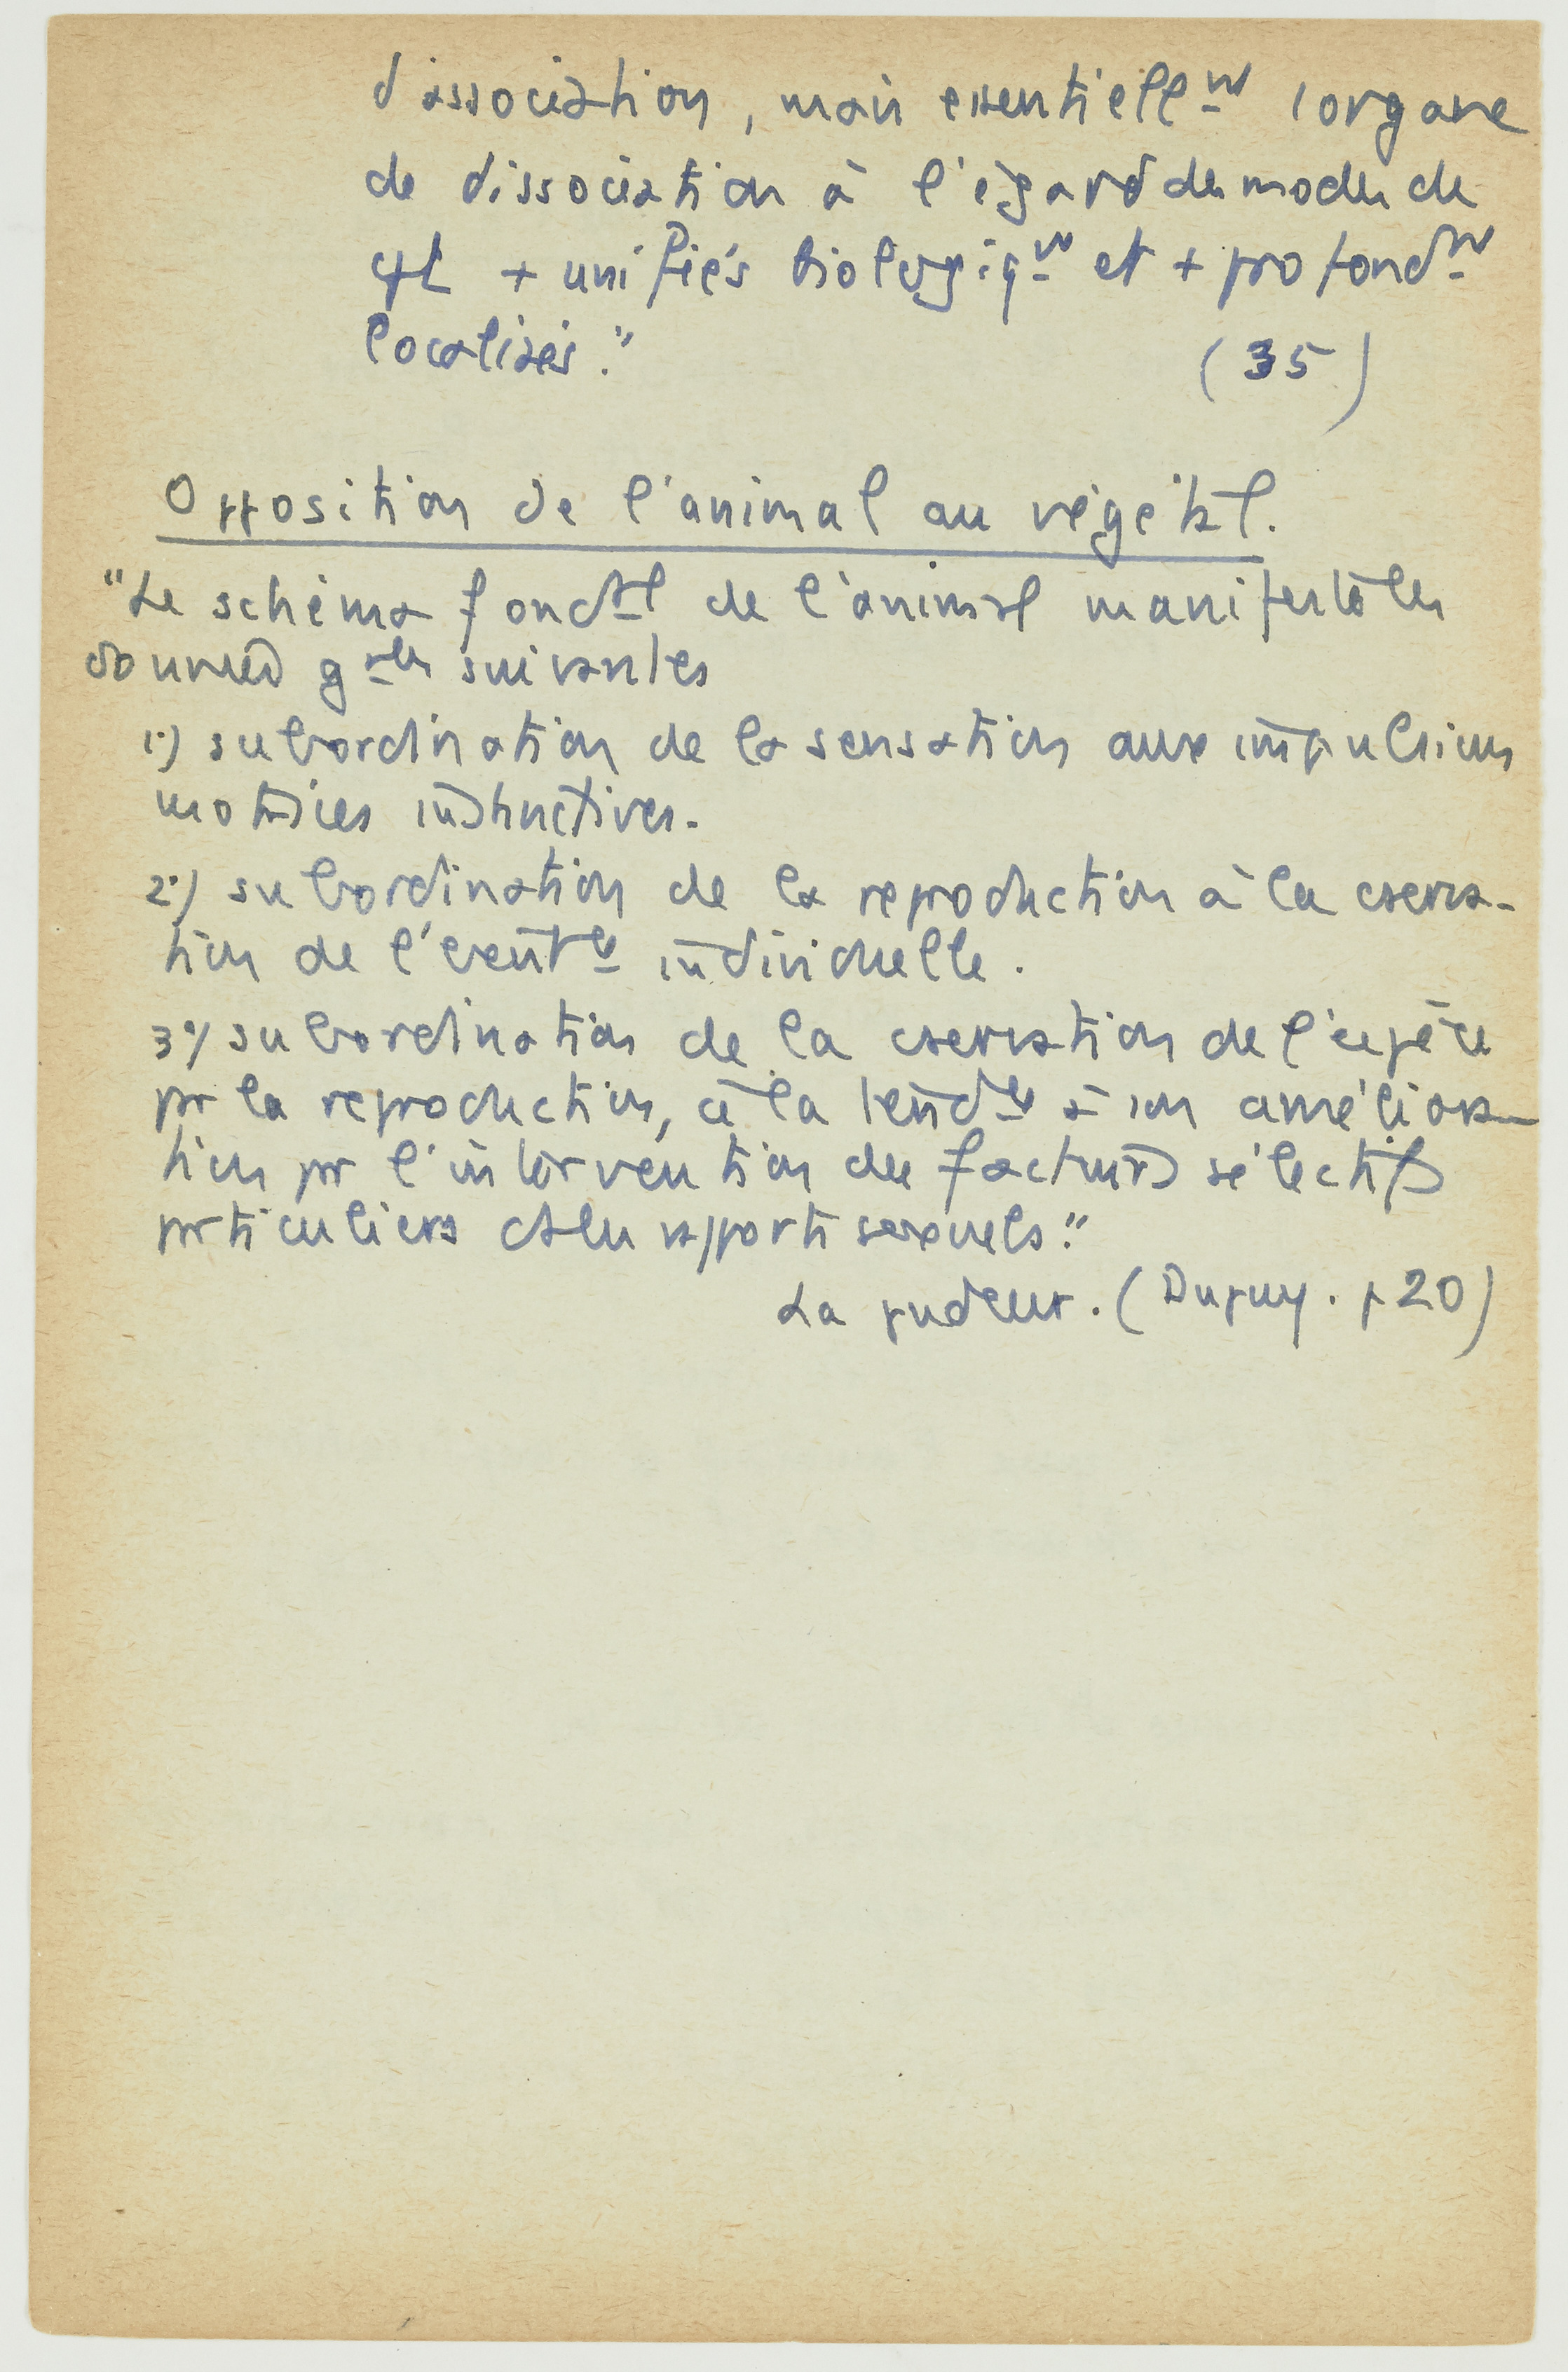 d'association, mais essentiellnt l'organe
de dissociation à l'égard des modes de
+ unifiés biologiqnt et + profondnt
localisés." (35)
Opposition de l'animal au végétal.
"Le schéma fonctl de l'animal manifeste les
données gales suivantes
1°) subordination de la sensation aux impulsions
motrices instinctives.
2°) subordination de la reproduction à la cserva-
tion de l' individuelle.
3°) subordination de la cservation de l'espèce
pr la reproduction, à la tendce à son améliora-
tion pr l'intervention des facteurs sélectifs
prticuliers ds les rapports sexuels."
La pudeur. (Dupuy. p 20)